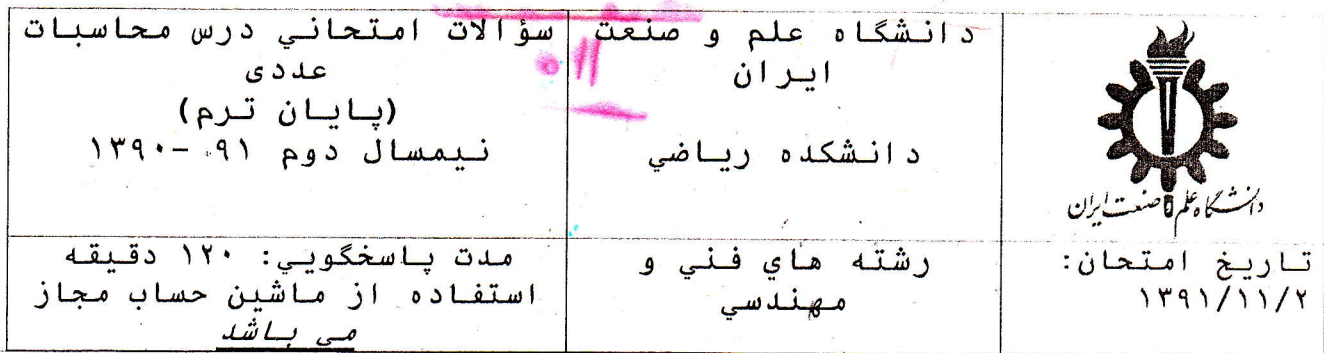 دانشگاه علم و صنعت ایران
تاريخ امتحان:
١٣٩١/١١/٢
دانشگاه علم و صنعت
ايران
دانشكده رياضي
رشته هاي فني و
مهندسي
سؤالات امتحاني درس محاسبات
عددی
(پايان ترم)
نيمسال دوم ٩١ -١٣٩٠
مدت پاسخگويي: ١٢٠ دقيقه
استفاده از ماشين حساب مجاز
مي باشد